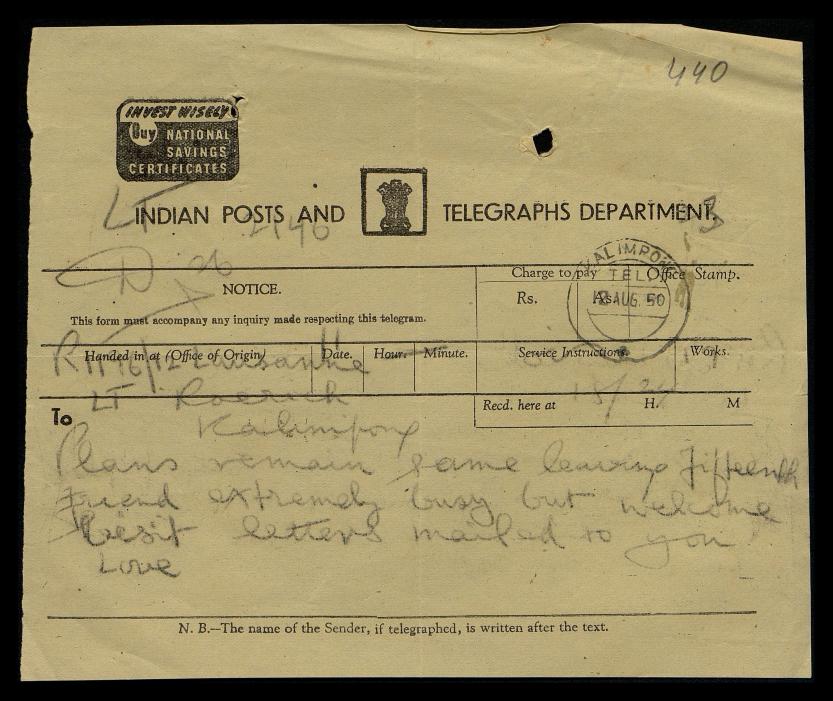 440
INVEST WISELY
Buy NATIONAL
SAVINGS
CERTIFICATES
LT
INDIAN POSTS AND TELEGRAPHS DEPARTMENT.
KALIMPONG
TEL.
AUG. 50
NOTICE.
This form must accompany any inquiry made respecting this telegram.
Charge to pay
Rs. As.
Office Stamp.
Handed in at (Office of Origin) Date. Hour. Minute. Service Instructions. Works.
Lausanne
LT Roerich
Recd. here at H. M
To
Kalimpong
Plans remain same leaving fifteenth
friend extremely busy but welcome
letters mailed to you
Love
N. B.—The name of the Sender, if telegraphed, is written after the text.